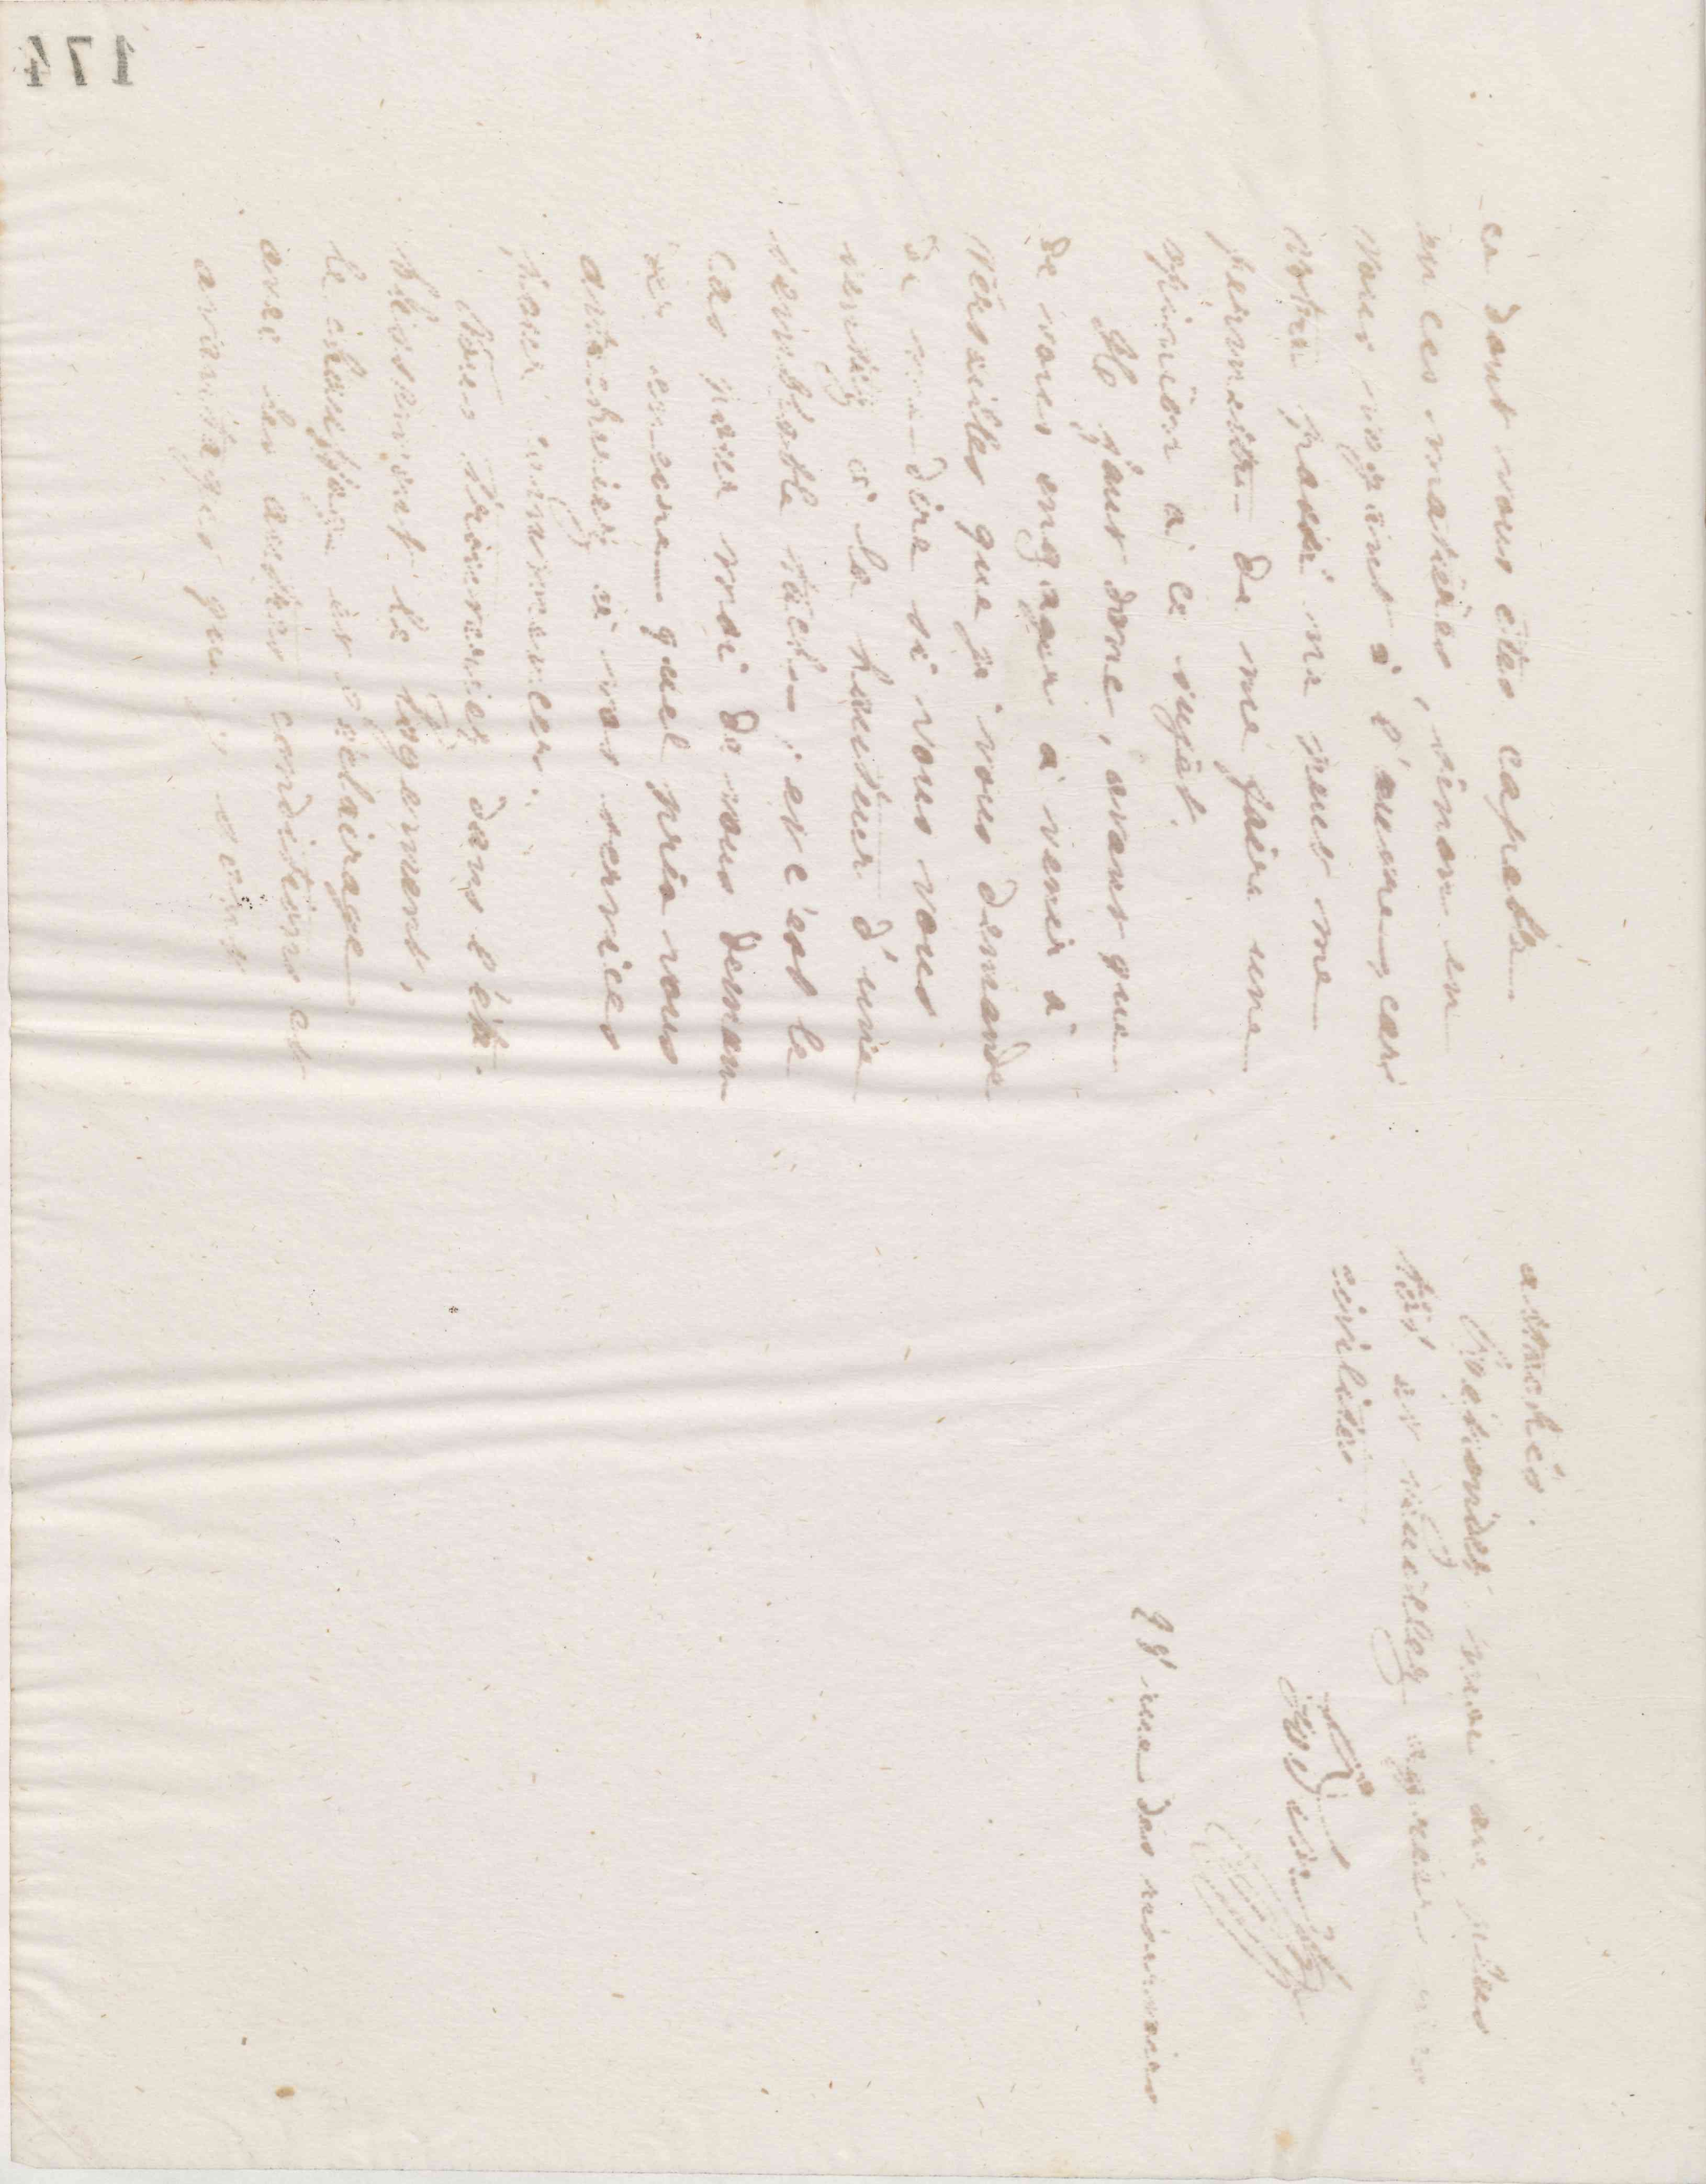 174
ce dont vous êtes capable
en ces matières, sinon en
vous voyant à l'œuvre, car
votre passé ne peut me
permettre de me faire une
opinion à ce sujet.
Il faut donc, avant que
de vous engager à venir à
Versailles que je vous demande
de me dire si vous vous
sentez à la hauteur d'une
semblable tâche; et c'est le
cas pour moi de vous deman
der encore quel prix vous
attacheriez à vos services
pour commencer.
Vous trouveriez dans l'éta-
blissement le logement,
le chauffage et l'éclairage
avec les autres conditions et
avantages qui y sont
attachés.
Répondez moi au plus
tôt et veuillez agréer mes
civilités
Godin
28 rue des réservoirs